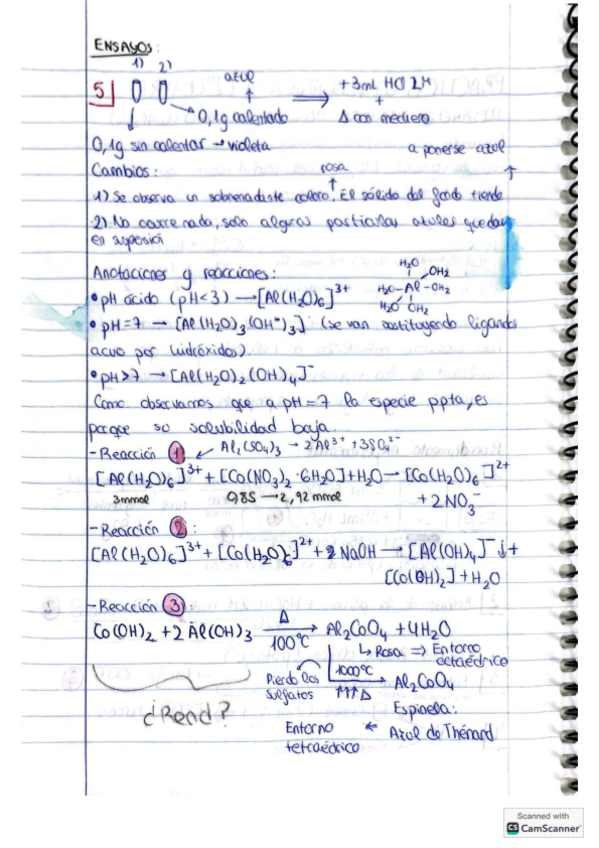 ENSAYOS:
1) 2)
5 azul ⟹ +3ml HCl 2M
+
0,1g calentado Δ con mechero
0,1g sin calentar → violeta a ponerse azul
Cambios: rosa
1) Se observa un sobrenadante coloro. El sólido del fondo tiende
2) No ocurre nada, solo algunas partículas azules quedan
en suspensión
Anotaciones y reacciones:
H₂O OH₂
H₂O - Al - OH₂
H₂O OH₂
• pH ácido (pH<3) → [Al(H₂O)₆]³⁺
• pH=7 → [Al(H₂O)₃(OH⁻)₃] (se van sustituyendo ligandos
acuo por hidróxidos).
• pH>7 → [Al(H₂O)₂(OH)₄]⁻
Como observamos que a pH=7 la especie ppta, es
porque su solubilidad baja.
- Reacción 1 : Al₂(SO₄)₃ → 2Al³⁺ + 3SO₄²⁻
[Al(H₂O)₆]³⁺ + [Co(NO₃)₂·6H₂O] + H₂O → [Co(H₂O)₆]²⁺
3mmol 0,85 → 2,92 mmol + 2NO₃⁻
- Reacción 2 :
[Al(H₂O)₆]³⁺ + [Co(H₂O)₆]²⁺ + 2 NaOH → [Al(OH)₄]⁻↓ +
[Co(OH)₂] + H₂O
- Reacción 3 :
Co(OH)₂ + 2Al(OH)₃ Δ 100ºC → Al₂CoO₄ + 4H₂O
↳ Rosa ⇒ Entorno
octaédrico
Pierdo los
sulfatos
1000ºC
↑↑↑Δ → Al₂CoO₄
¿Rend? Espinela:
Entorno ⇐ Azul de Thénard
tetraédrico
Scanned with
CS CamScanner